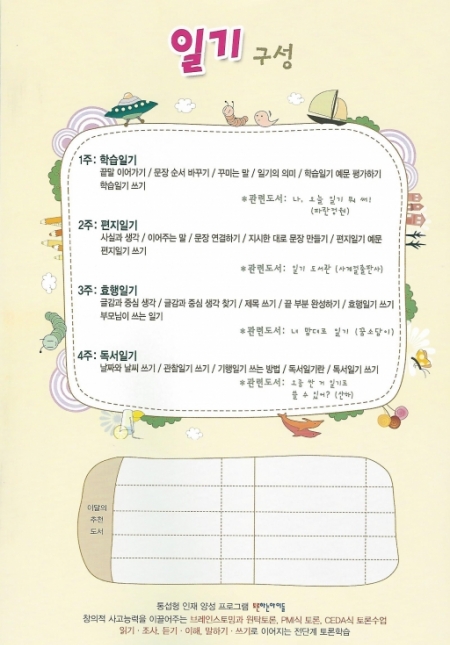 일기 구성
1주: 학습일기
끝말 이어가기 / 문장 순서 바꾸기 / 꾸미는 말 / 일기의 의미 / 학습일기 예문 평가하기
학습일기 쓰기
*관련도서: 나, 오늘 일기 뭐 써!
(파란정원)
2주: 편지일기
사실과 생각 / 이어주는 말 / 문장 연결하기 / 지시한 대로 문장 만들기 / 편지일기 예문
편지일기 쓰기
*관련도서: 일기 도서관 (사계절출판사)
3주: 효행일기
글감과 중심 생각 / 글감과 중심 생각 찾기 / 제목 쓰기 / 끝 부분 완성하기 / 효행일기 쓰기
부모님이 쓰는 일기
*관련도서: 내 맘대로 일기 (꿈소담이)
4주: 독서일기
날짜와 날씨 쓰기 / 관찰일기 쓰기 / 기행일기 쓰는 방법 / 독서일기란 / 독서일기 쓰기
*관련도서: 오늘 한 거 일기로
쓸 수 있어? (산하)
이달의
추천
도서
통섭형 인재 양성 프로그램 토론하는아이들
창의적 사고능력을 이끌어주는 브레인스토밍과 원탁토론, PMI식 토론, CEDA식 토론수업
읽기·조사, 듣기·이해, 말하기·쓰기로 이어지는 전단계 토론학습